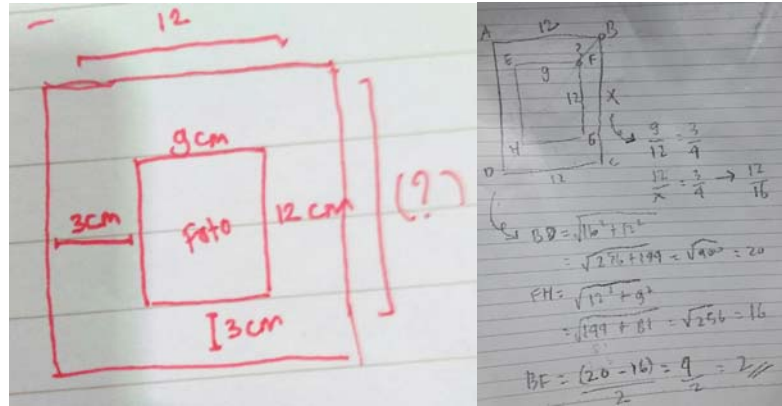 12
9 cm
3cm
foto
12 cm
(?)
3cm
A 12 B
E 2 F
9
12 x
H G
D 12 C
9/12 = 3/4
12/x = 3/4 → 12/16
BD = √16² + 12²
= √256 + 144 = √400 = 20
FH = √12² + 9²
= √144 + 81 = √256 = 16
BF = (20 - 16)/2 = 4/2 = 2 //